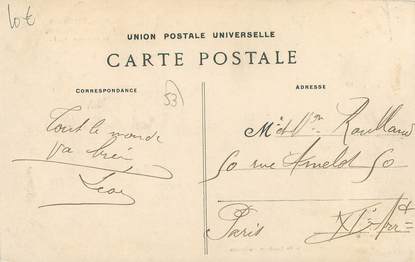 10 €
UNION POSTALE UNIVERSELLE
CARTE POSTALE
CORRESPONDANCE
ADRESSE
53
Tout le monde
va bien
Léon
Mr et
50 rue Amelot 50
Paris XIe Arrt